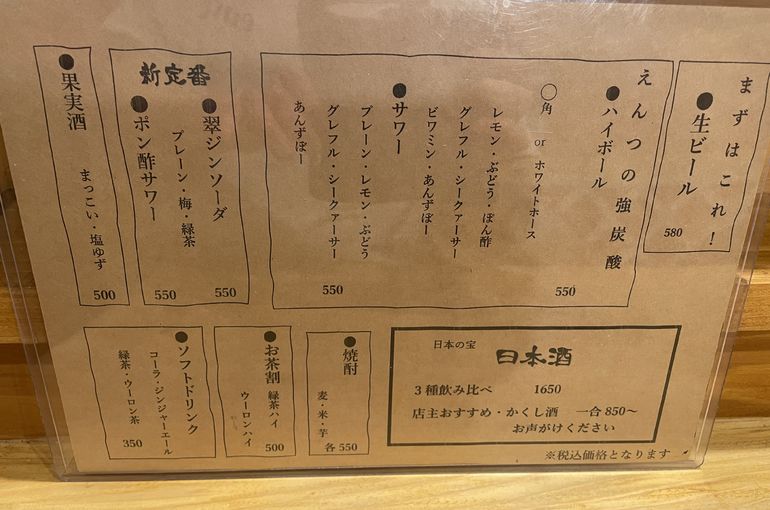 まずはこれ！
●生ビール
580
えんつの強炭酸
●ハイボール
○角 or ホワイトホース
レモン・ぶどう・ぽん酢
グレフル・シークァーサー
ビワミン・あんずぼー
550
●サワー
プレーン・レモン・ぶどう
グレフル・シークァーサー
あんずぼー
550
新定番
●翠ジンソーダ
プレーン・梅・緑茶
550
●ポン酢サワー
550
●果実酒
まっこい・塩ゆず
500
日本の宝
日本酒
3種飲み比べ 1650
店主おすすめ・かくし酒 一合850～
お声がけください
●焼酎
麦・米・芋
各550
●お茶割
緑茶ハイ
ウーロンハイ
500
●ソフトドリンク
コーラ・ジンジャーエール
緑茶・ウーロン茶
350
※税込価格となります